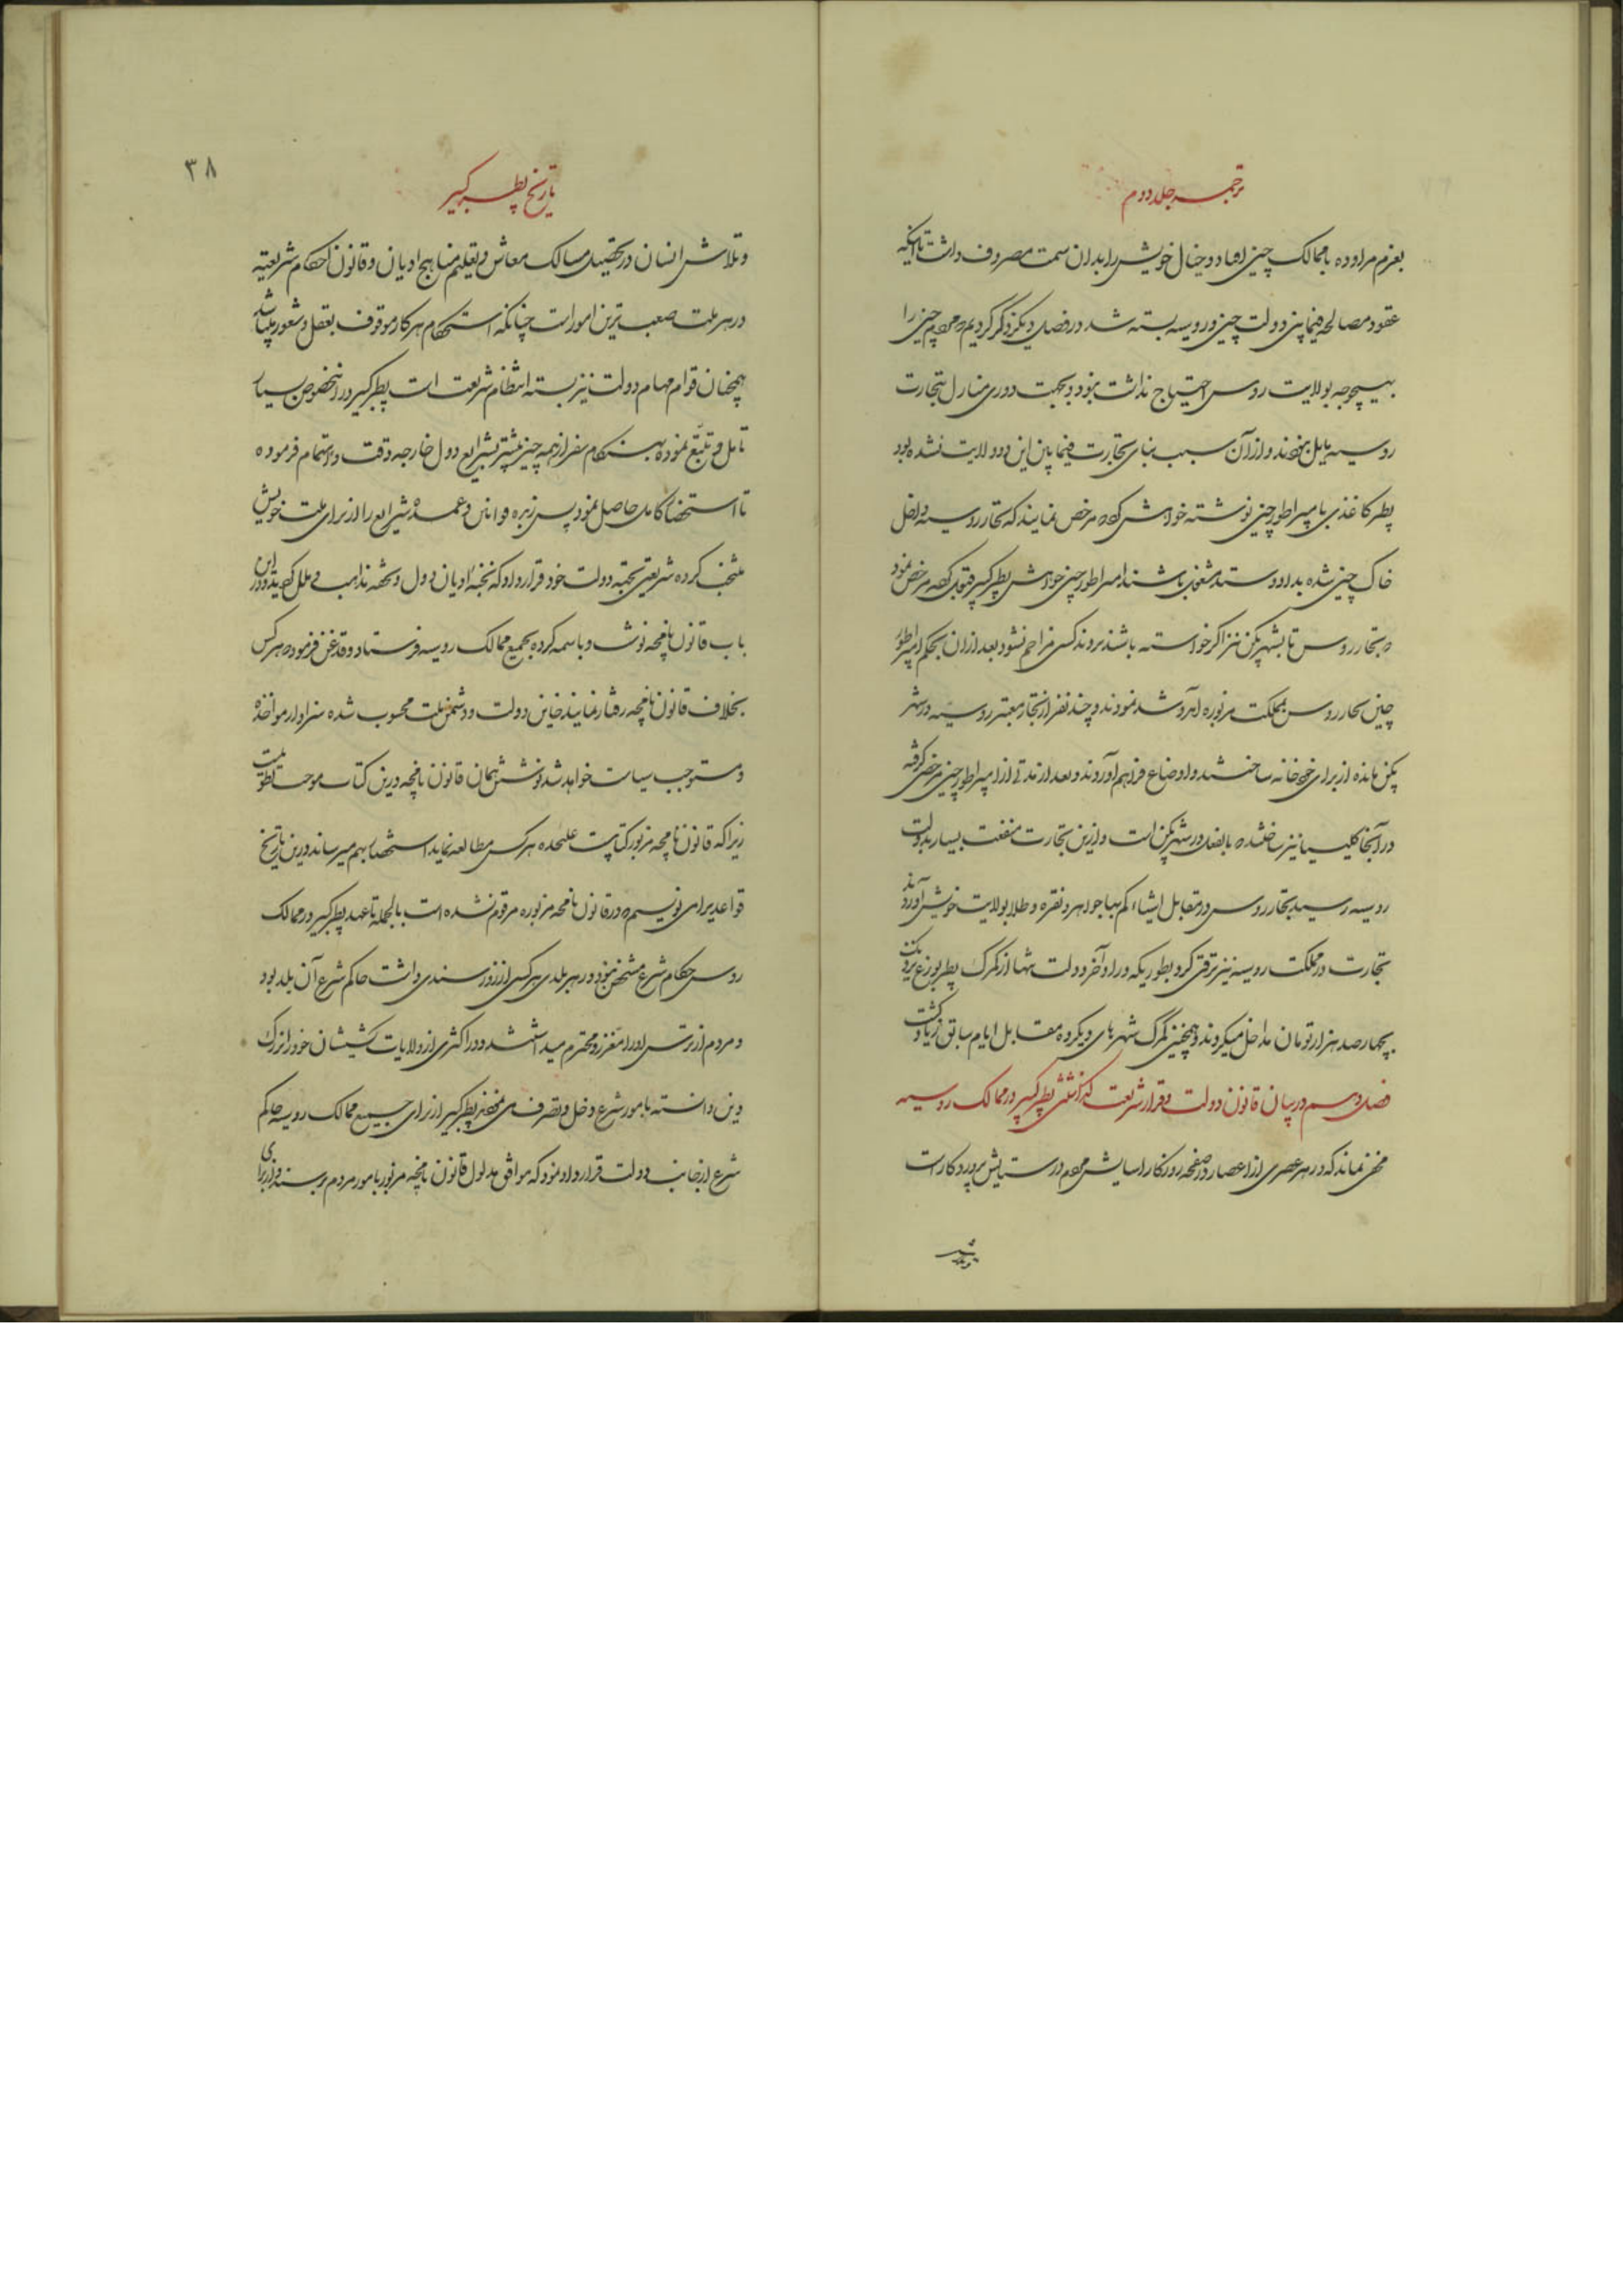 ترجمه جلد دوم
بعزم مراوده با ممالک چین افتاد و خیال خویش را بدان سمت مصروف داشت تا اینکه
عقود مصالحه فیمابین دولت چین و روسیه بسته شد در فصل دیگر ذکر کردیم که مردم چین را
بهیچوجه بولایت روس احتیاج نداشت بود و بجهت دوری منازل بتجارت
روسیه مایل نبودند و از آن سبب بنای تجارت فیما بین این دو ولایت نشده بود
پطر کاغذی بامپراطور چین نوشته خواهش کرد که مرخص نمایند که تجار روسیه داخل
خاک چین شده بداد و ستد مشغول باشند امپراطور چین خواهش پطر کبیر قبول کرده مرخص نمود
که تجار روس تا بشهر پکن نیز اگر خواسته باشند بروند کسی مزاحم نشود بعد از آن بحکم امپراطور
چین تجار روس بمملکت مزبوره آمد و شد نمودند و چند نفر از تجار معتبر روسیه در شهر
پکن مانده از برای خود خانه ساختند و اوضاع فراهم آوردند و بعد از مدتی از امپراطور چین مرخصی گرفته
در آنجا کلیسیا نیز ساختند که بالفعل در شهر پکن است و ازین تجارت منفعت بسیار بدولت
روسیه رسید تجار روس در مقابل اشیاء کم بها جواهر و نقره و طلا بولایت خویش آوردند
تجارت در مملکت روسیه نیز ترقی کرد بطوریکه در اواخر دولت تنها از گمرک پطربورغ
بچهار صد هزار تومان مداخل میکردند و همچنین گمرک شهرهای دیگر ده مقابل ایام سابق زیاد گشت
فصل دوم در بیان قانون دولت و قرار شریعت گذاشتن پطر کبیر در ممالک روسیه
مخفی نماند که در هر عصری از اعصار در صفحه روزگار آسایش مردم در ستایش پروردگار است
۳۸
تاریخ پطر کبیر
و تلاش انسان در تحصیل مسالک معاش و تعلیم مناهج ادیان و قانون احکام شریعتیه
در هر ملت صعب ترین امور است چنانکه استحکام هر کار موقوف بعقل و شعور میباشد
همچنان قوام مهام دولت نیز بسته انتظام شریعت است پطر کبیر در اینخصوص بسیار
تامل و تتبع نموده بهنگام سفر از همه چیز بیشتر بشرایع دول خارجه دقت و اهتمام فرموده
تا استحضار کامل حاصل نمود پس زبره قوانین و عمده شرایع را از برای ملت خویش
منتخب کرده شریعتی بجهة دولت خود قرار داد که نخبه ادیان دول و تحفه مذاهب و ملل گردید و در این
باب قانون نامچه نوشت و باسمه کرده بجمیع ممالک روسیه فرستاد و قدغن فرمود که هر کس
بخلاف قانون نامچه رفتار نمایند خاین دولت و دشمن ملت محسوب شده سزاوار مواخذه
و مستوجب سیاست خواهد شد نوشتن همان قانون نامچه درین کتاب موجب تطویلست
زیرا که قانون نامچه مزبور کتابیست علیحده هر کس مطالعه نماید استحضار بهم میرساند درین تاریخ
قواعدیرا می نویسم که در قانون نامچه مزبوره مرقوم نشده است بالجمله تا عهد پطر کبیر در ممالک
روس حکام شرع مشخص نبود در هر بلدی هر کس از زور سندی داشت حاکم شرع آن بلد بود
و مردم از ترس او را معزز و محترم میداشتند و در اکثری از ولایات کشیشان خود را بزرگ
دین دانسته بامور شرع دخل و تصرف می نمودند پطر کبیر از برای جمیع ممالک روسیه حاکم
شرع از جانب دولت قرار داد نمود که موافق مدلول قانون نامچه مزبور بامور مردم برسند و از برای